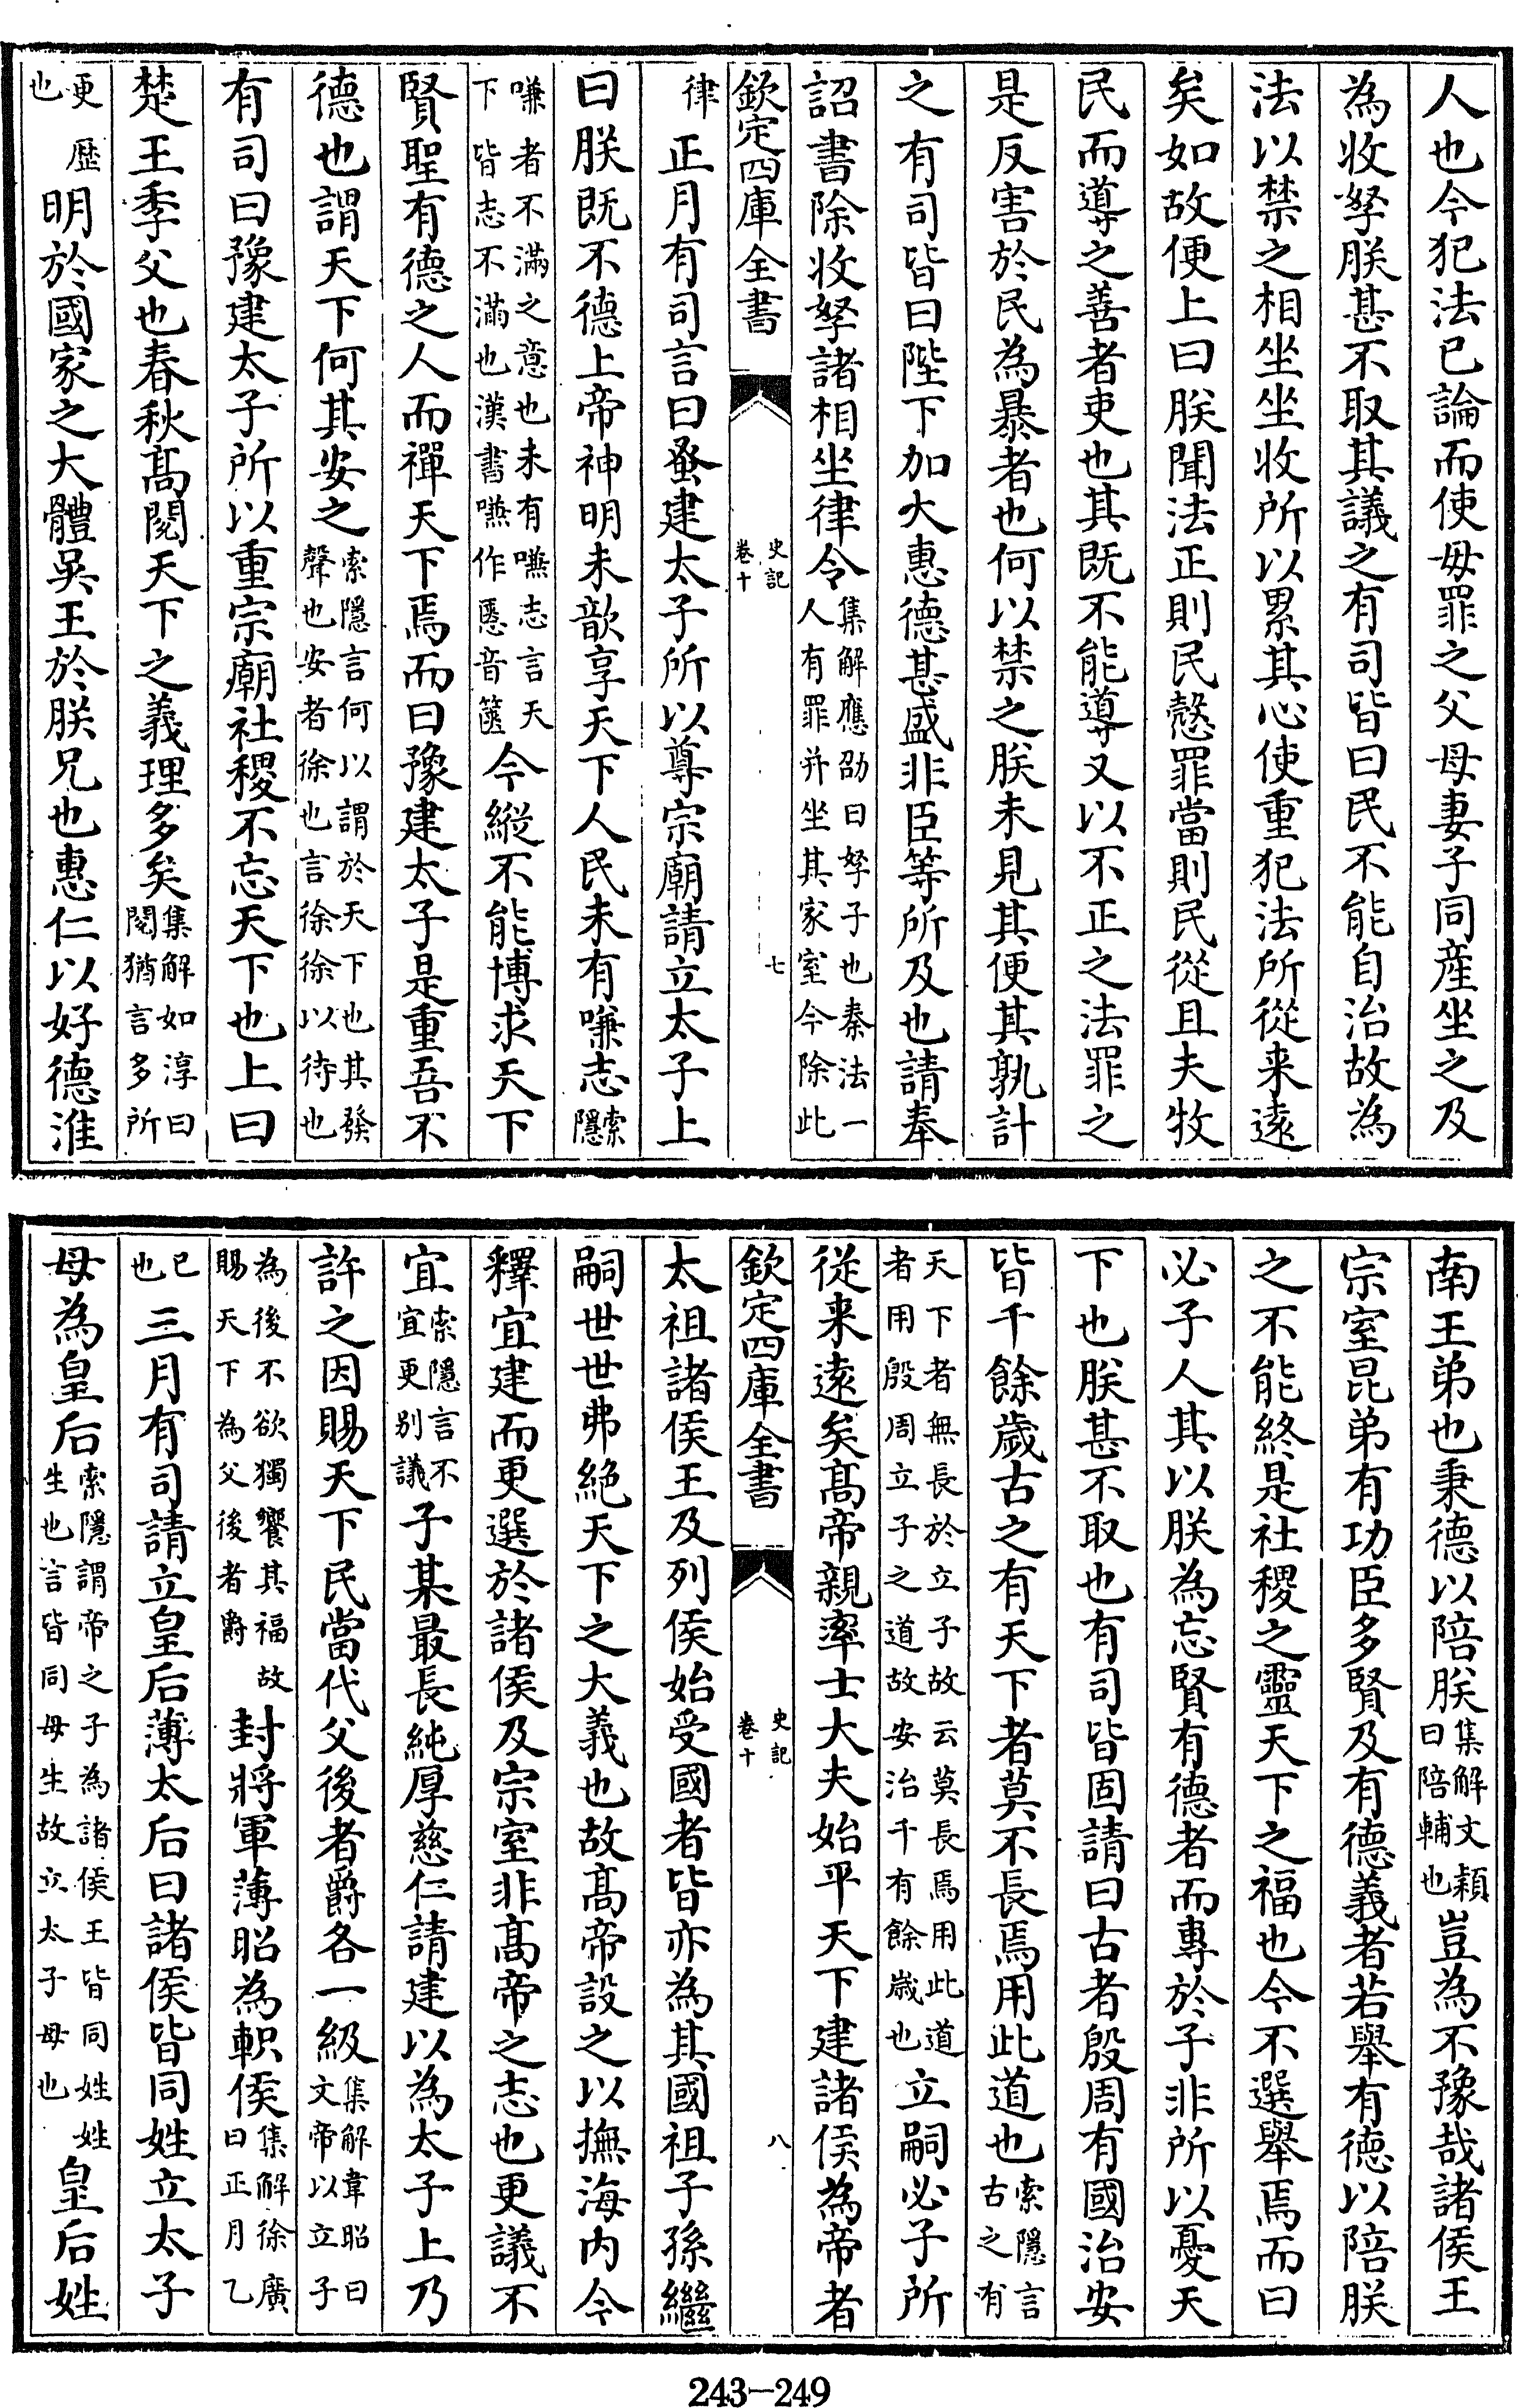 人也今犯法已論而使毋罪之父母妻子同産坐之及
為收孥朕甚不取其議之有司皆曰民不能自治故為
法以禁之相坐坐收所以累其心使重犯法所從来逺
矣如故便上曰朕聞法正則民慤罪當則民從且夫牧
民而導之善者吏也其既不能導又以不正之法罪之
是反害於民為暴者也何以禁之朕未見其便其孰計
之有司皆曰陛下加大惠德甚盛非臣等所及也請奉
詔書除收孥諸相坐律令集解應劭曰孥子也秦法一人有罪并坐其家室今除此
欽定四庫全書 史記卷十 七
律正月有司言曰蚤建太子所以尊宗廟請立太子上
曰朕既不德上帝神明未歆享天下人民未有嗛志索隱
嗛者不滿之意也未有嗛志言天下皆志不滿也漢書嗛作慝音篋今縱不能博求天下
賢聖有德之人而禪天下焉而曰豫建太子是重吾不
德也謂天下何其安之索隱言何以謂於天下也其發聲也安者徐也言徐徐以待也
有司曰豫建太子所以重宗廟社稷不忘天下也上曰
楚王季父也春秋髙閱天下之義理多矣集解如淳曰閱猶言多所
更歴也明於國家之大體吳王於朕兄也惠仁以好德淮
南王弟也秉德以陪朕集解文穎曰陪輔也豈為不豫哉諸侯王
宗室昆弟有功臣多賢及有德義者若舉有德以陪朕
之不能終是社稷之靈天下之福也今不選舉焉而曰
必子人其以朕為忘賢有德者而專於子非所以憂天
下也朕甚不取也有司皆固請曰古者殷周有國治安
皆千餘歲古之有天下者莫不長焉用此道也索隱言古之有
天下者無長於立子故云莫長焉用此道者用殷周立子之道故安治千有餘歲也立嗣必子所
從来逺矣髙帝親率士大夫始平天下建諸侯為帝者
欽定四庫全書 史記卷十 八
太祖諸侯王及列侯始受國者皆亦為其國祖子孫繼
嗣世世弗絶天下之大義也故髙帝設之以撫海内今
釋宜建而更選於諸侯及宗室非髙帝之志也更議不
宜索隱言不宜更别議子某最長純厚慈仁請建以為太子上乃
許之因賜天下民當代父後者爵各一級集解韋昭曰文帝以立子
為後不欲獨饗其福故賜天下為父後者爵封將軍薄昭為軹侯集解徐廣曰正月乙
巳也三月有司請立皇后薄太后曰諸侯皆同姓立太子
母為皇后索隱謂帝之子為諸侯王皆同姓姓生也言皆同母生故立太子母也皇后姓
243—249